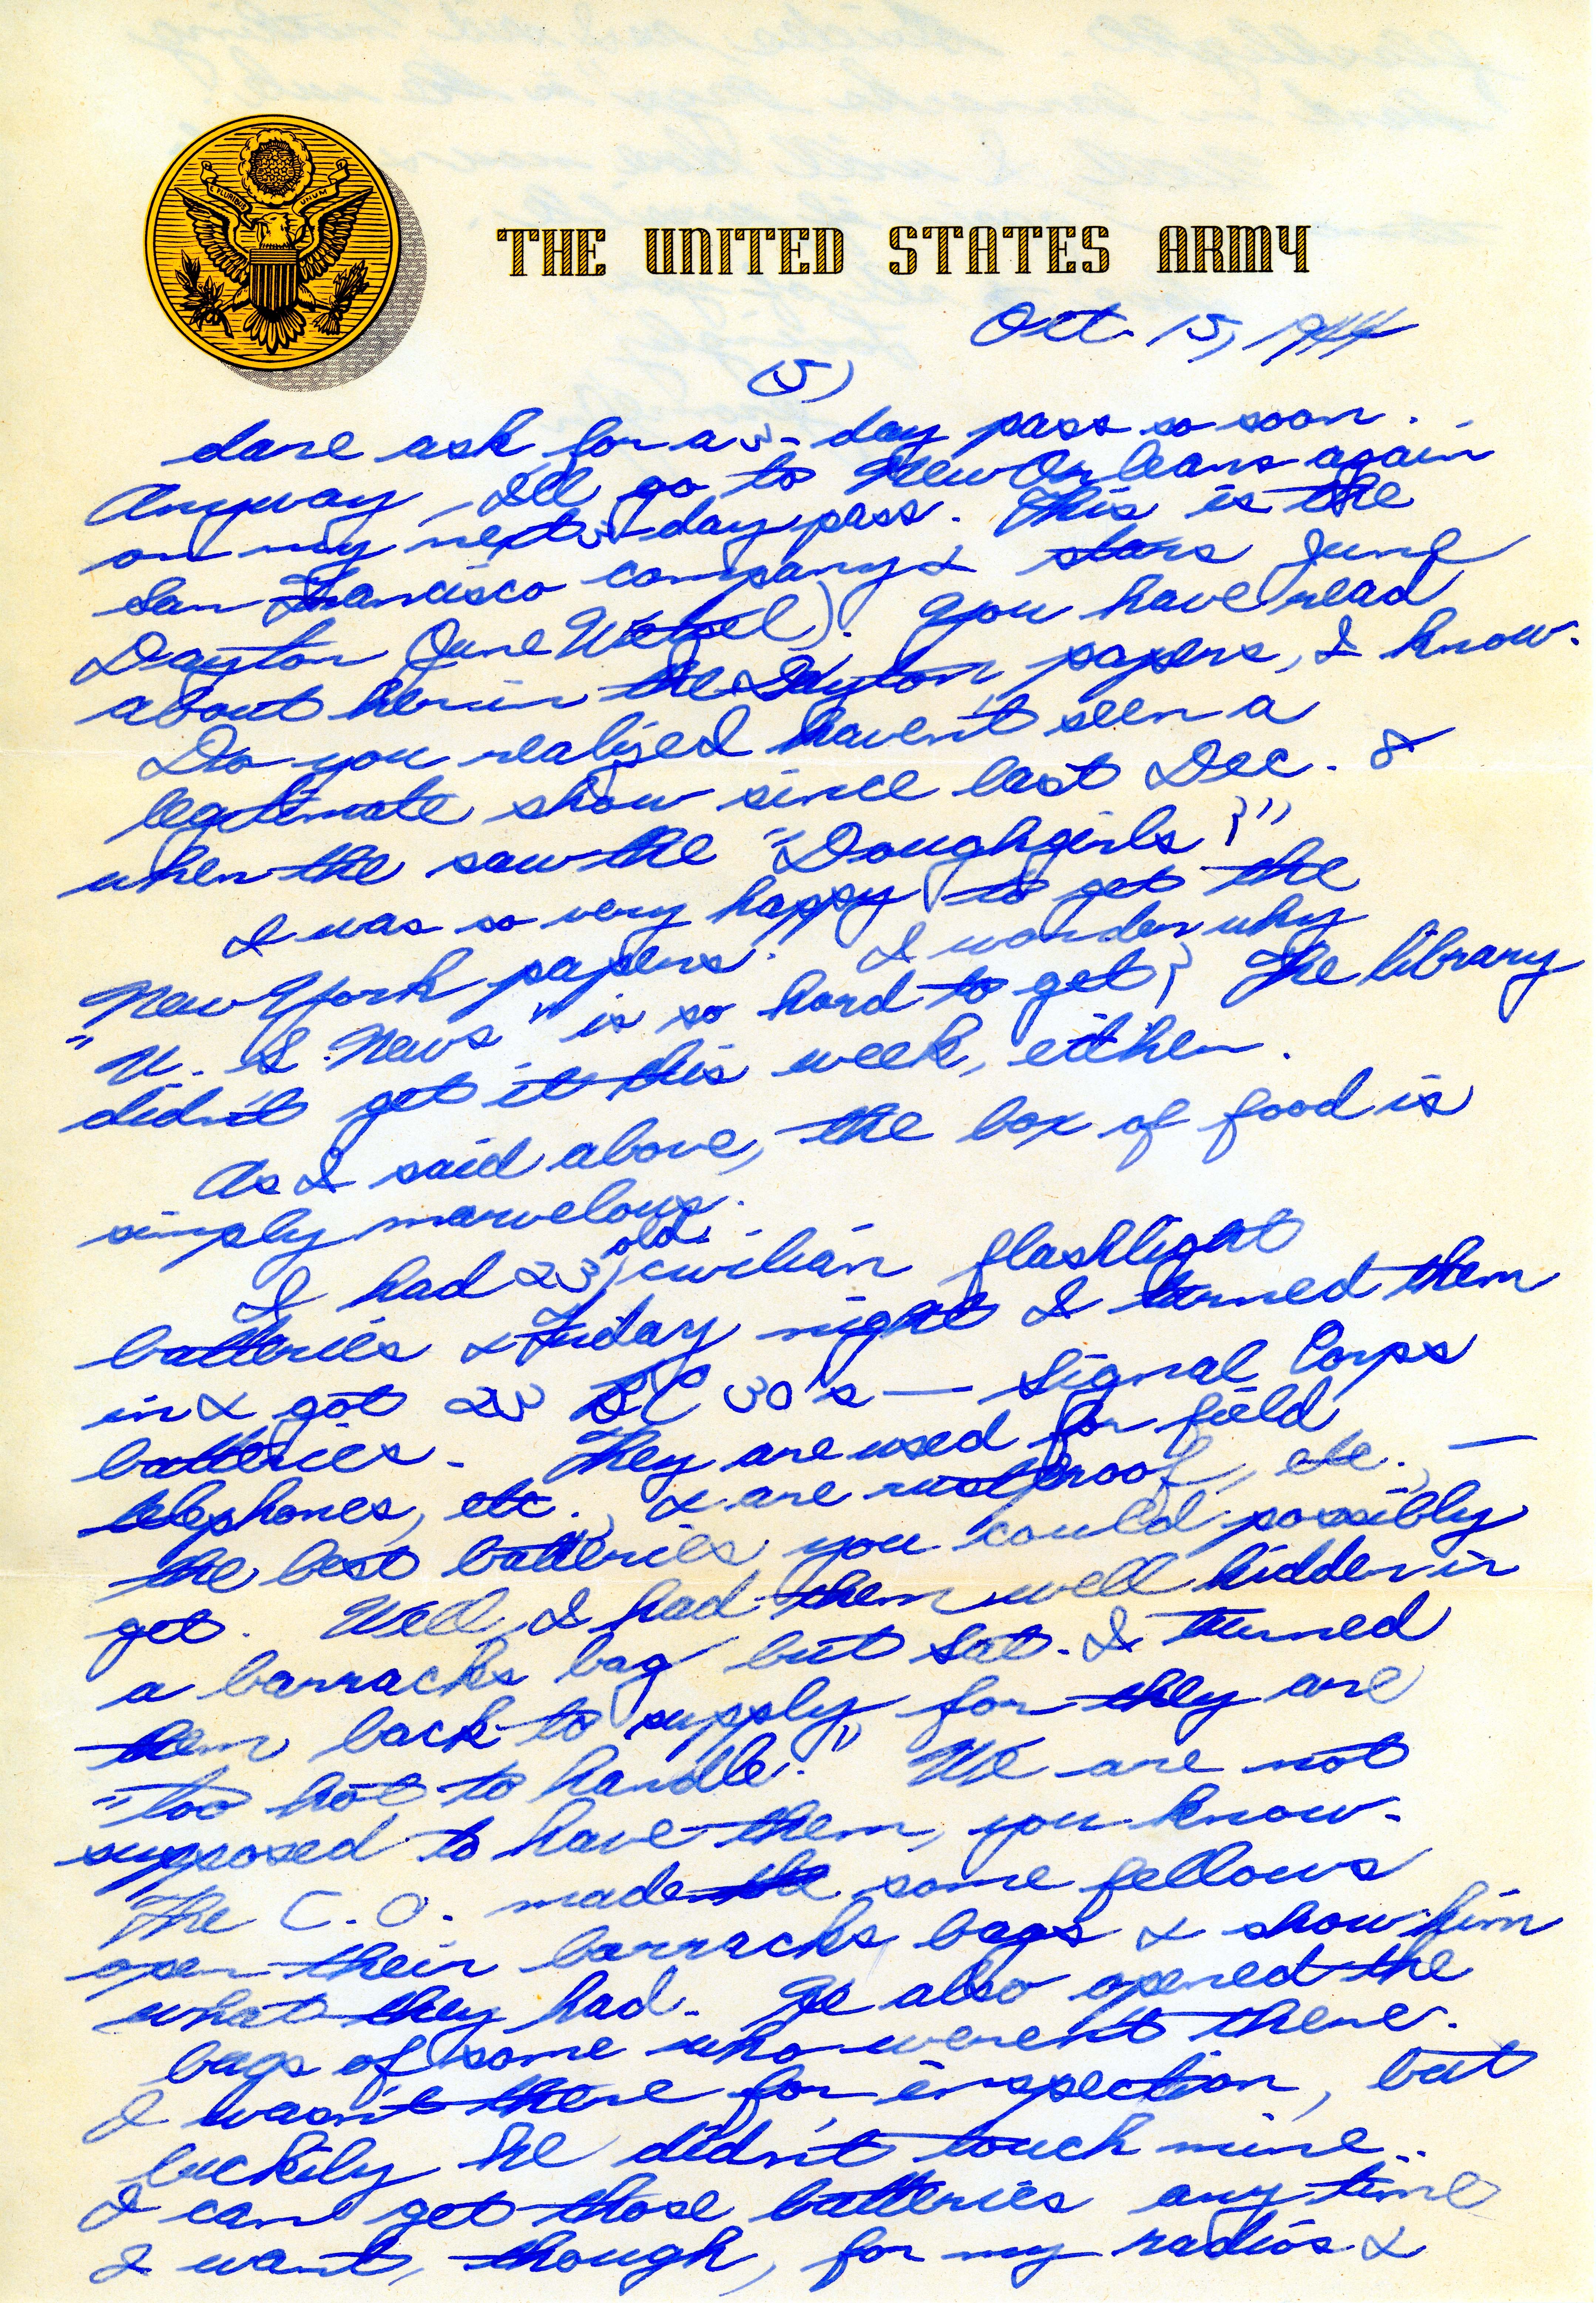 E PLURIBUS UNUM
THE UNITED STATES ARMY
Oct. 15, 1944
(5)
dare ask for a 3-day pass so soon.
Anyway, I'll go to New Orleans again
on my next 3-day pass. This is the
San Francisco company & stars June
Dayton (June Wetzel). You have read
about her in the Dayton papers, I know.
Do you realize I haven't seen a
legitimate show since last Dec. 8
when the saw the "Doughgirls?"
I was so very happy to get the
New York papers. I wonder why
"U. S. News" is so hard to get? The library
didn't get it this week, either.
As I said above, the box of food is
simply marvelous.
I had 23 old civilian flashlight
batteries & Friday night I turned them
in & got 23 BC 30's — Signal Corps
batteries. They are used for field
telephones, etc., & are rustproof, etc. —
the best batteries you could possibly
get. Well, I had them well hidden in
a barracks bag but Sat. I turned
them back to supply for they are
"too hot to handle." We are not
supposed to have them, you know.
The C.O. made the some fellows
open their barracks bags & show him
what they had. He also opened the
bags of some who weren't there.
I wasn't there for inspection, but
luckily he didn't touch mine.
I can get those batteries any time
I want, though, for my radios &